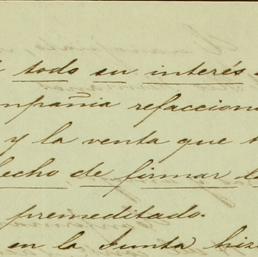 todo su interés
compañia refaccion
y la venta que
hecho de firmar
premeditado.
en la Junta hiz